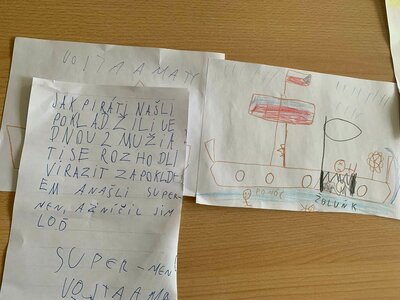 VOJTA A MATY
JAK PIRÁTI NAŠLI
POKLAD ŽILI VE
DNOU 2 MUŽI A
TI SE ROZHODLI
VIRAZIT ZA POKLAD
EM A NAŠLI SUPER-
MEN, A ZNIČIL JIM
LOĎ
SUPER-MEN
VOJTA A MA
POMOC
ŽBLUNK